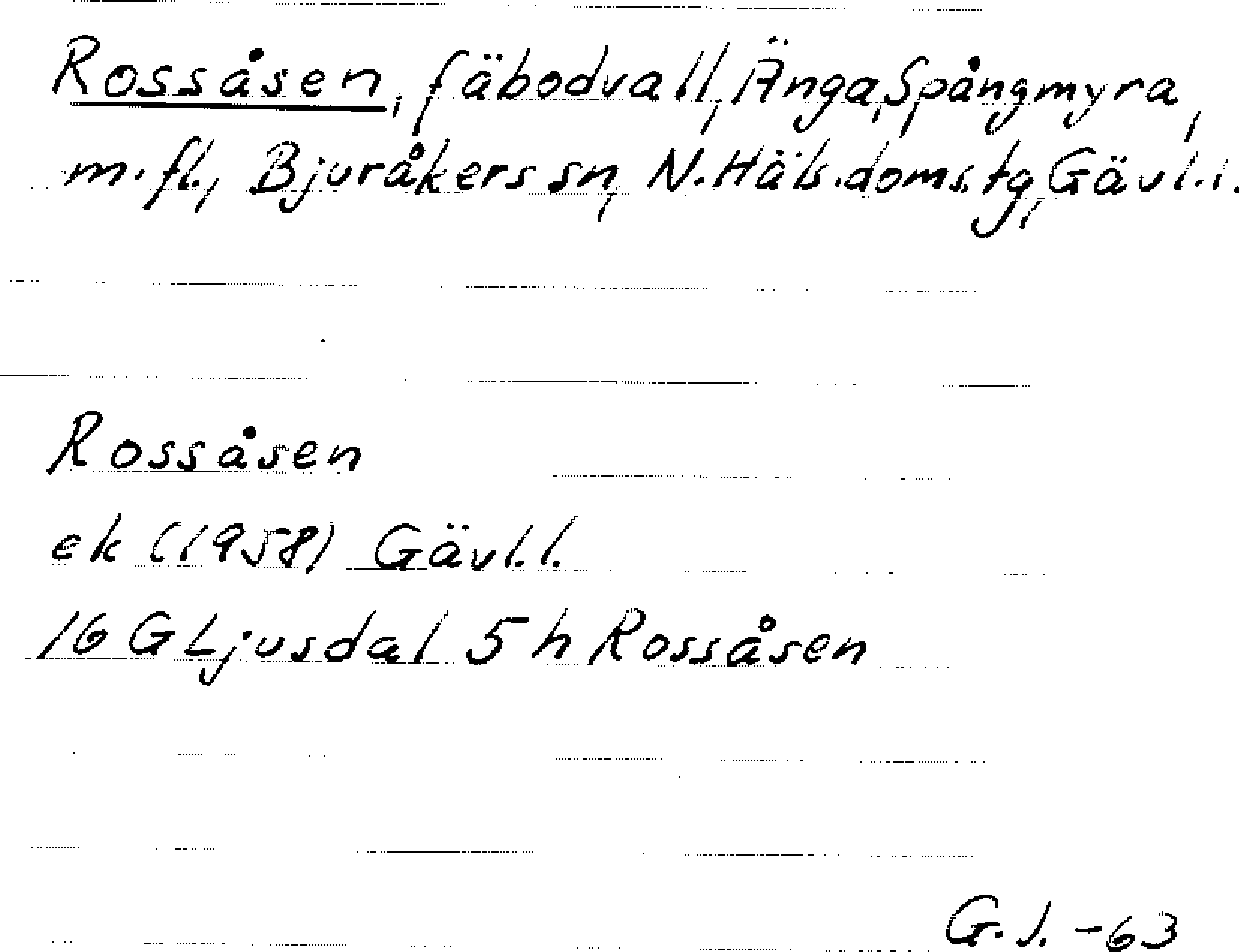 Rossåsen, fäbodvall, Änga, Spångmyra,
m.fl., Bjuråkers sn, N. Häls. doms. tg, Gävl.l.
Rossåsen
ek (1958) Gävl.l.
16 G Ljusdal 5 h Rossåsen
G.J. -63